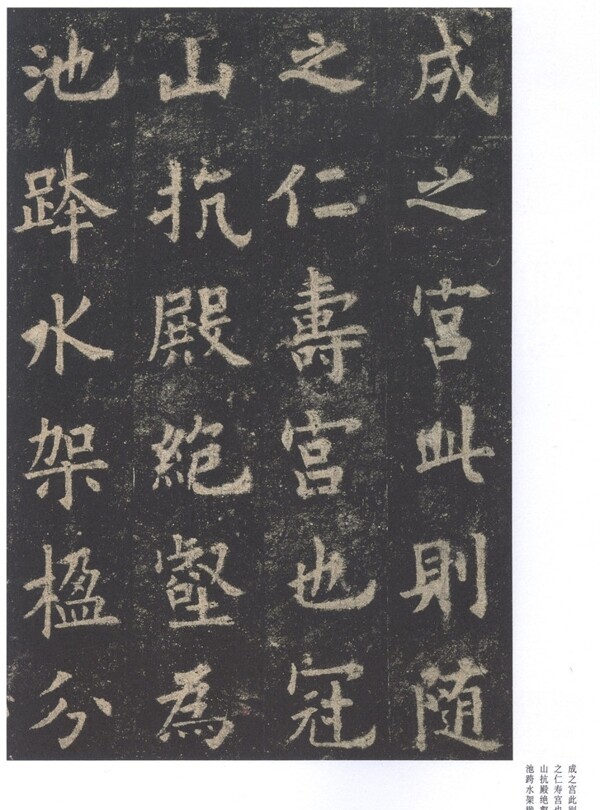 成之宮此則随
之仁壽宮也冠
山抗殿絶壑為
池跨水架楹分
成之宫此则
之仁寿宫也
山抗殿绝壑
池跨水架楹